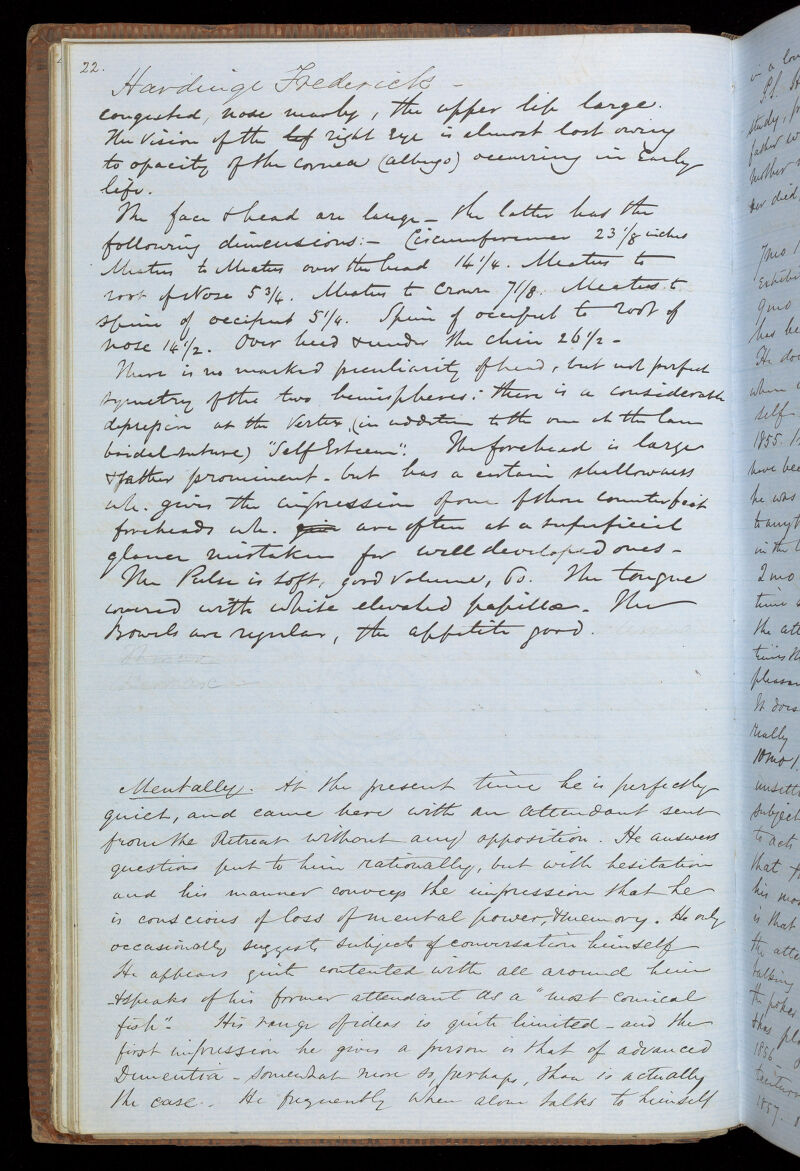 22.
Hardinge Frederick -
congested, nose nearly, the upper lip large.
The vision of the lef right eye is almost lost owing
to opacity of the cornea (albugo) occurring in Early
life.
The face & head are large - the latter has the
following dimensions:- Circumference 23 1/8 inches
Meatus to Meatus over the head 14 1/4. Meatus to
root of Nose 5 3/4. Meatus to Crown 7 1/8. Meatus to
spine of occiput 5 1/4. Spine of occiput to root of
nose 14 1/2. Over head & under the chin 26 1/2 -
There is no marked peculiarity of head, but not perfect
symmetry of the two hemispheres: there is a considerable
depression at the Vertex (in addition to the one at the lam
boidal suture) "Self Esteem". The forehead is large
& rather prominent - but has a certain shallowness
wh. gives the impression of one of those counterfeit
foreheads wh. are often at a superficial
glance mistaken for well developed ones -
The Pulse is soft, good volume, 60. The tongue
covered with white elevated papillae. The
Bowels are regular, the appetite good.
Mentally. At the present time he is perfectly
quiet, and came here with an attendant sent
from the Retreat without any opposition. He answers
questions put to him rationally, but with hesitation
and his manner conveys the impression that he
is conscious of loss of mental power, & memory. He only
occasionally suggests subjects of conversation himself
He appears quite contented with all around him
- & speaks of his former attendant as a "most comical
fish". His range of ideas is quite limited - and the
first impression he gives a person is that of advanced
Dementia - somewhat more so, perhaps, than is actually
the case. He frequently when alone talks to himself
in a
P.S.
study,
father
Mother
her died
7mo
9mo
has be
He do
when
self
1855.
have bee
he was
to any
in the
2 mo
time
the att
times
pleas
It does
really
10mo
unsett
subject
to acts
that
his mo
is that
the atte
talking
the poker
thus pl
1856
1857.